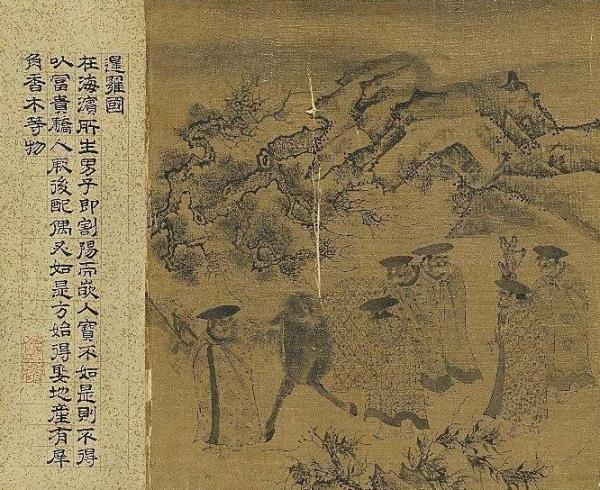 暹羅國
在海濱所生男子即割陽而嵌人寶不如是則不得
以富貴驕人厥後配偶又如是方始得娶地產有犀
角香木等物